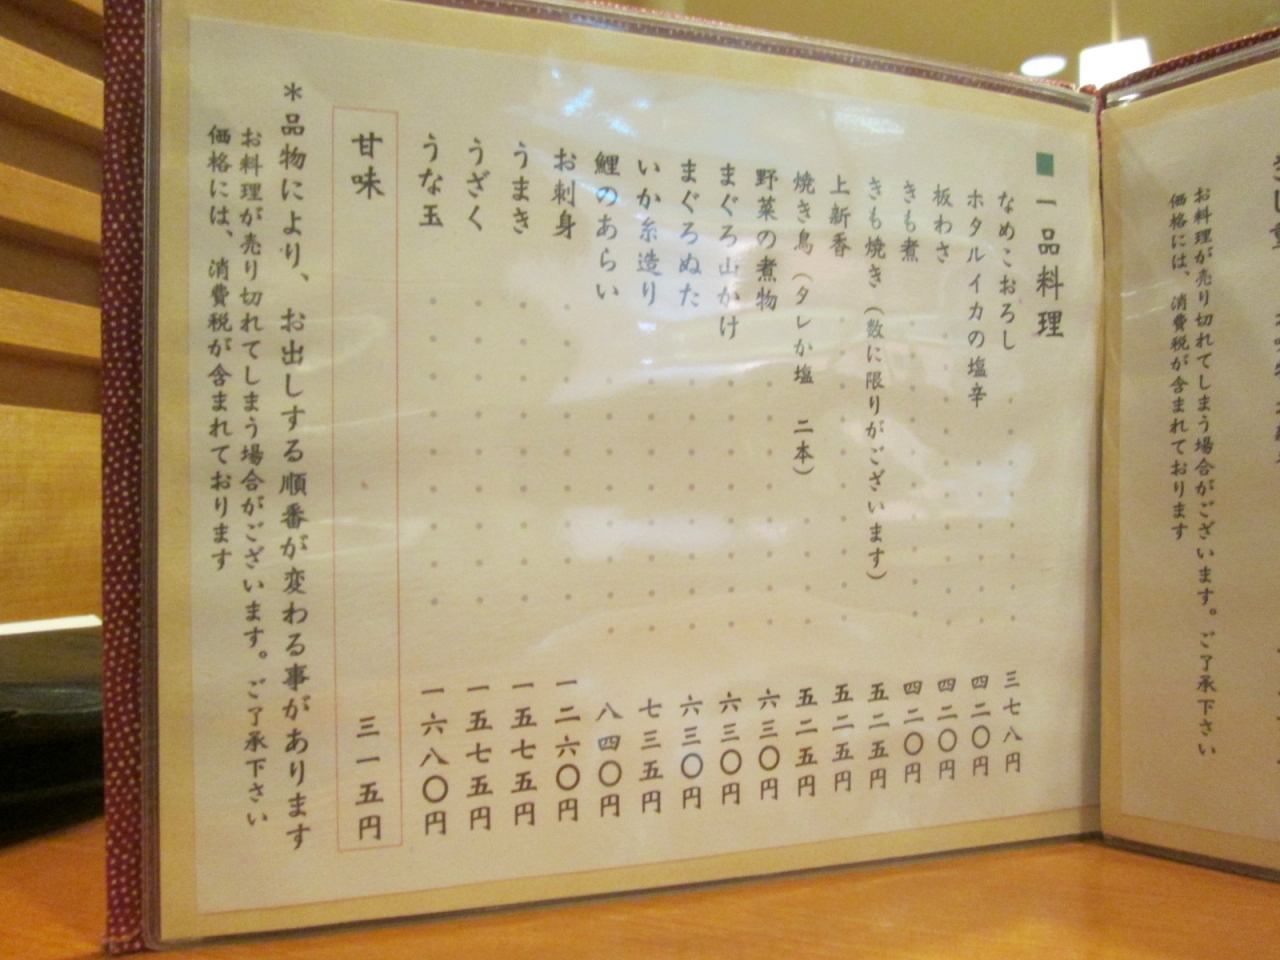 お料理が売り切れてしまう場合がございます。ご了承下さい
価格には、消費税が含まれております
■一品料理
なめこおろし 三七八円
ホタルイカの塩辛 四二〇円
板わさ 四二〇円
きも煮 四二〇円
きも焼き（数に限りがございます） 五二五円
上新香 五二五円
焼き鳥（タレか塩 二本） 五二五円
野菜の煮物 六三〇円
まぐろ山かけ 六三〇円
まぐろぬた 六三〇円
いか糸造り 七三五円
鯉のあらい 八四〇円
お刺身 一二六〇円
うまき 一五七五円
うざく 一五七五円
うな玉 一六八〇円
甘味 三一五円
＊品物により、お出しする順番が変わる事があります
お料理が売り切れてしまう場合がございます。ご了承下さい
価格には、消費税が含まれております